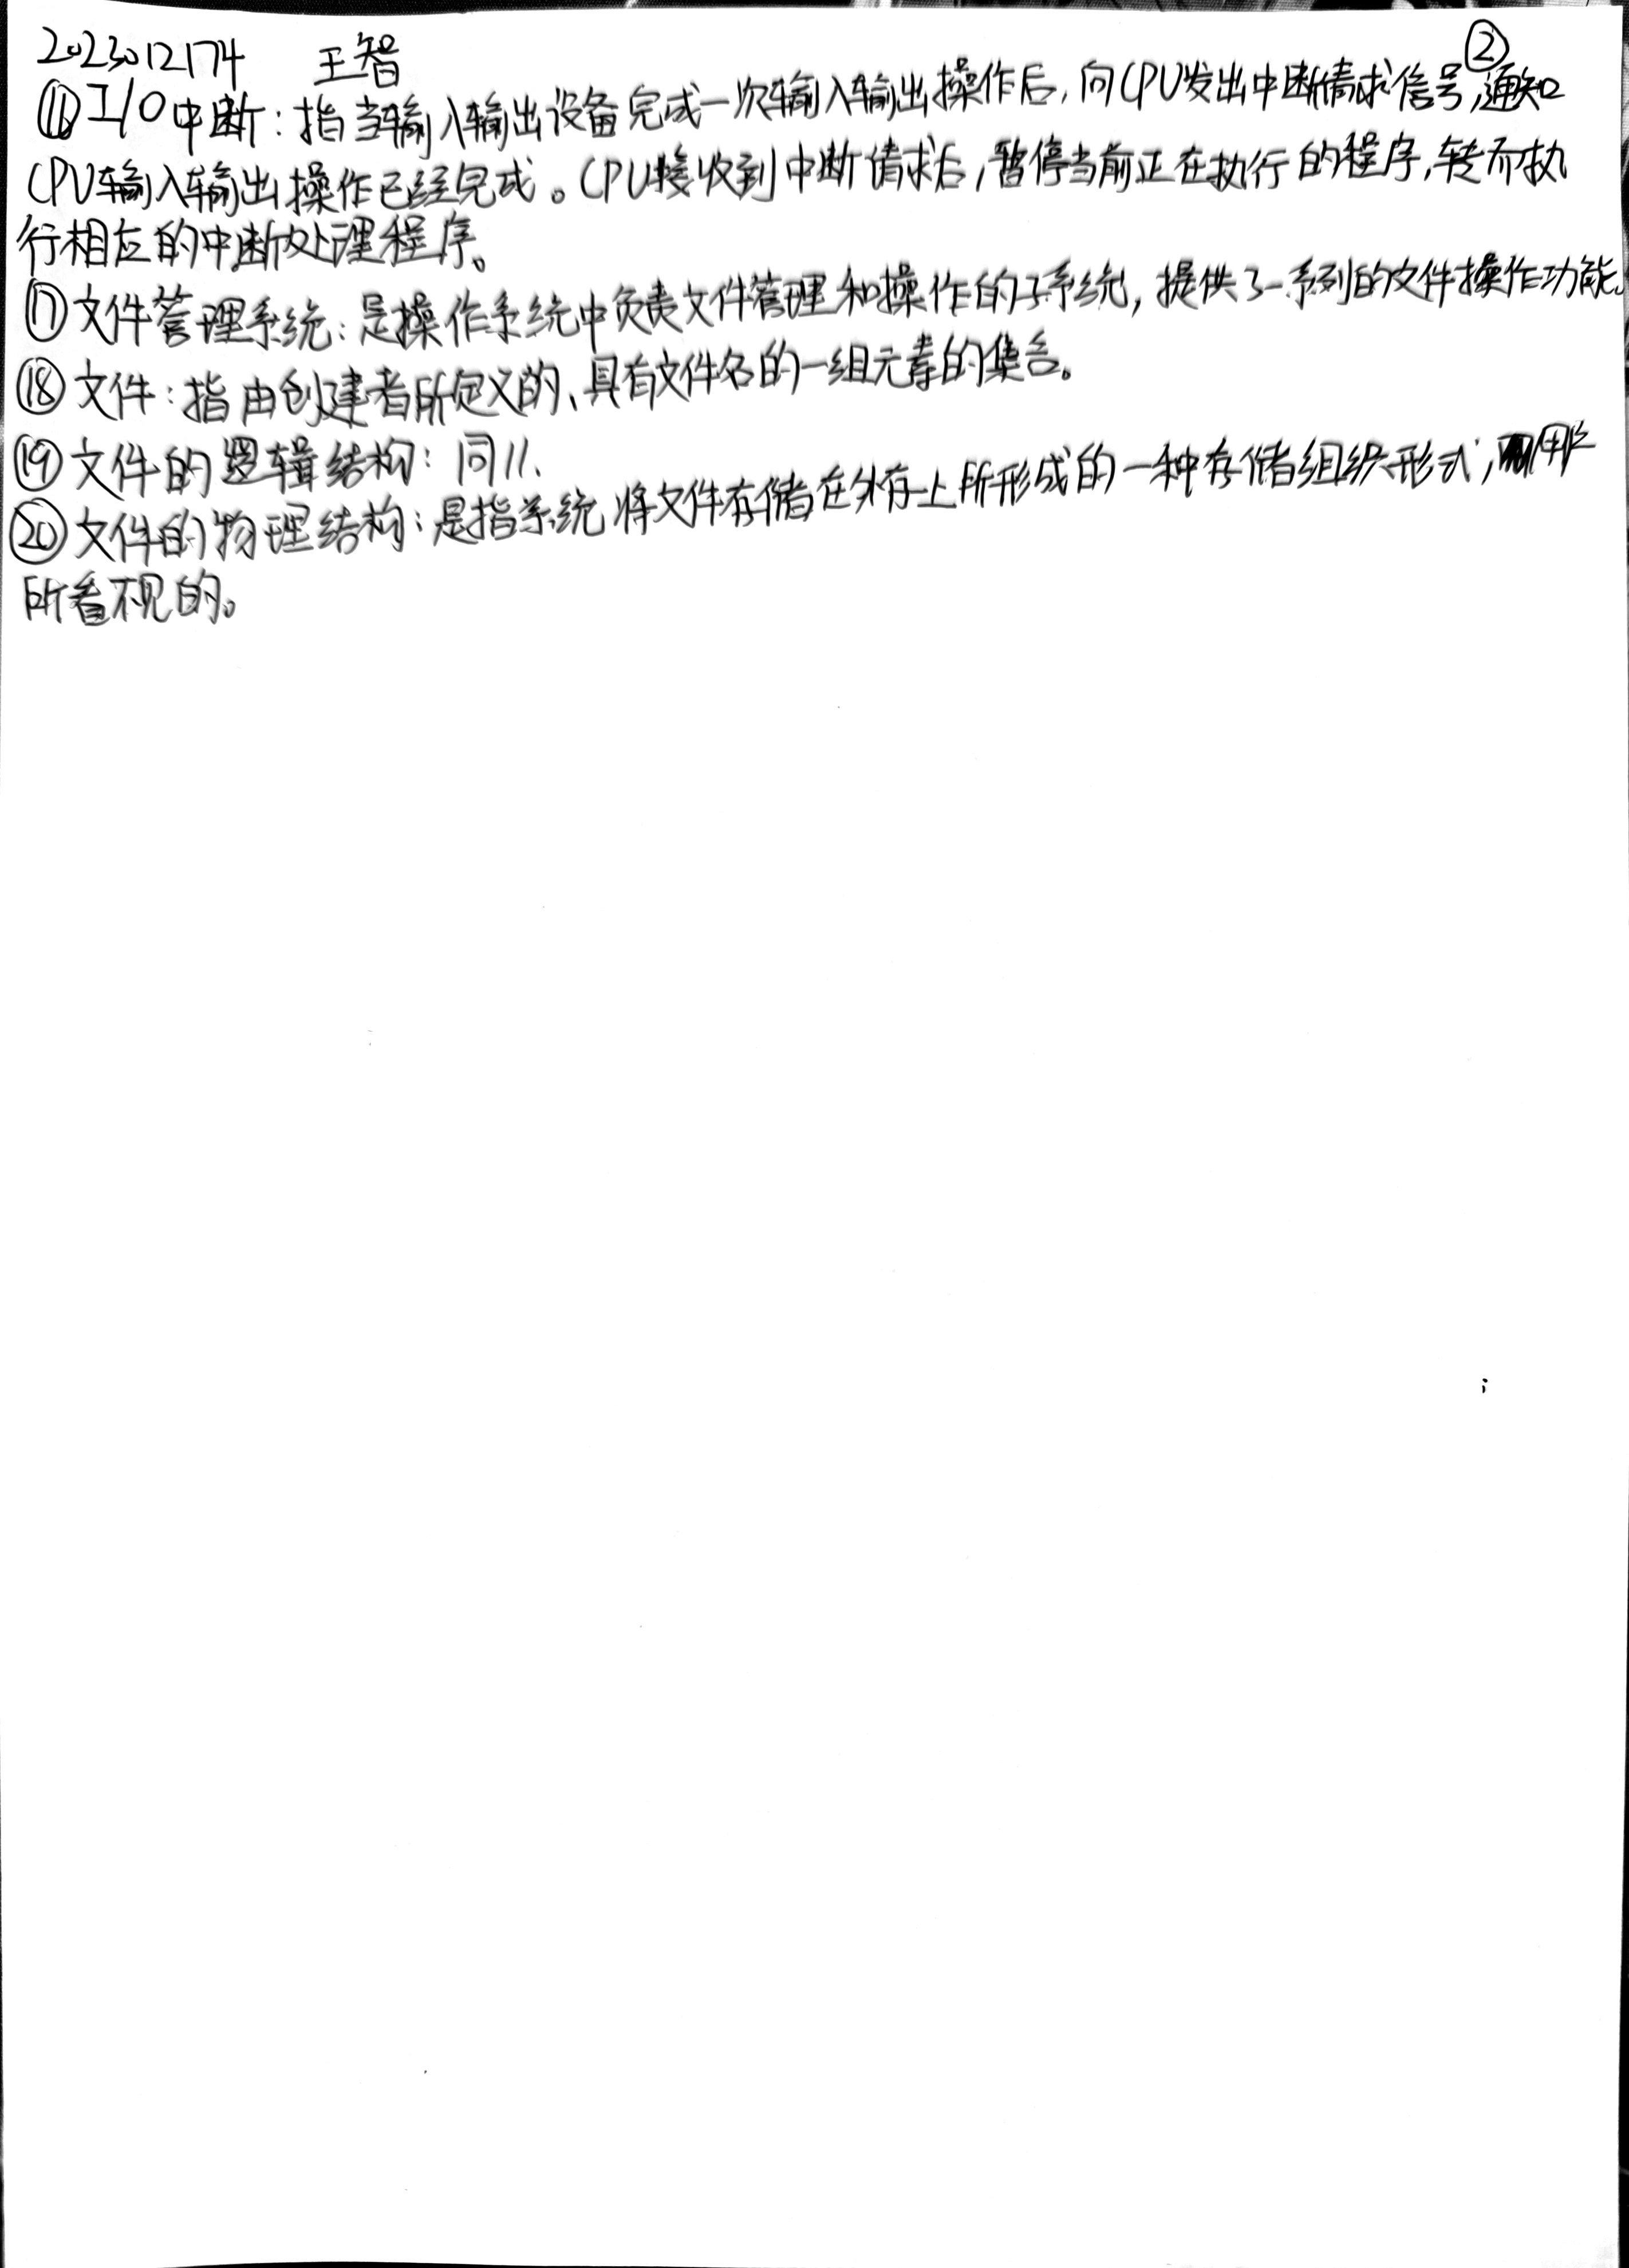 2023012174 王智 ②
⑯I/O中断：指当输入输出设备完成一次输入输出操作后，向CPU发出中断请求信号，通知
CPU输入输出操作已经完成。CPU接收到中断请求后，暂停当前正在执行的程序，转而执
行相应的中断处理程序。
⑰文件管理系统：是操作系统中负责文件管理和操作的子系统，提供了一系列的文件操作功能。
⑱文件：指由创建者所定义的、具有文件名的一组元素的集合。
⑲文件的逻辑结构：同11.
⑳文件的物理结构：是指系统将文件存储在外存上所形成的一种存储组织形式，用户
所看不见的。